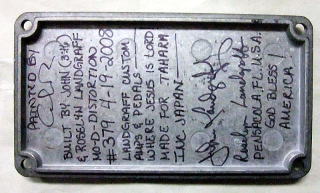 PAINTED BY
BUILT BY JOHN (3:16)
& ROSELYN LANDGRAFF
MO-D-DISTORTION
#379 4-19-2008
LANDGRAFF CUSTOM
AMPS & PEDALS
WHERE JESUS IS LORD
MADE FOR TAHARA
INC JAPAN
John Landgraff
Roselyn Landgraff
PENSACOLA, FL. U.S.A.
GOD BLESS
AMERICA!